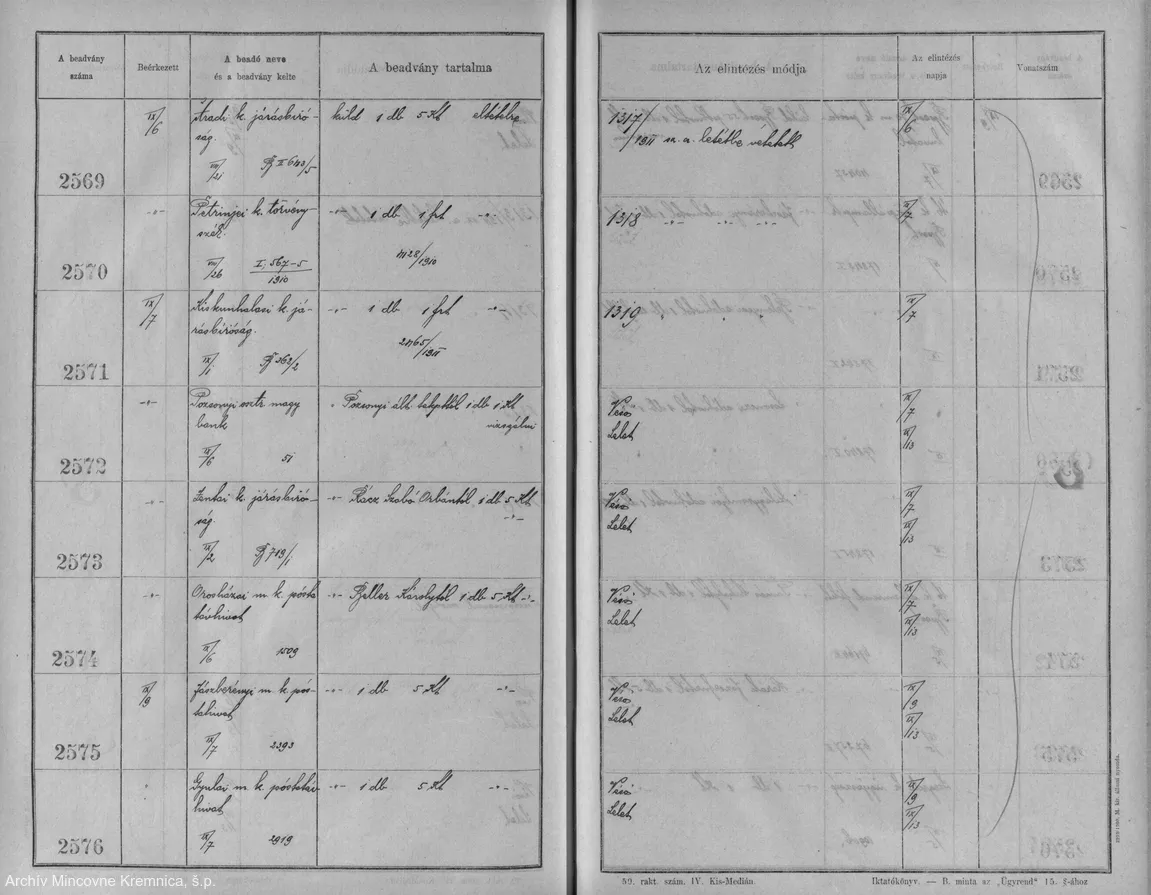 A beadvány
száma
Beérkezett
A beadó neve
és a beadvány kelte
A beadvány tartalma
Az elintézés módja
Az elintézés
napja
Vonatszám
2569
IX/6
Aradi k. járásbiró-
ság.
VIII/21
küld 1 db 5 Kt eltételre
1317/1911 sz. a. letétbe vétetett
IX/6
2570
-"-
Petrinjei k. törvény-
szék.
VIII/26
I. 567-5
1910
-"- 1 db 1 frt -"-
1128/1910
1318 -"- -"- -"-
IX/7
2571
IX/7
Kiskunhalasi k. já-
rásbiróság.
IX/1
B 362/2
-"- 1 db 1 frt -"-
1319 " "
IX/7
2572
-"-
Pozsonyi osztr. magy
bank
IX/6
51
" Pozsonyi ált. 1 db 1 Kt
vizsgálni
Véső
Lelet
IX/7
IX/13
2573
-"-
Zentai k. járásbiró-
ság.
IX/2
B 719/1
-"- Rácz Szabó Orbántól 1 db 5 Kt
-"-
Véső
Lelet
IX/7
IX/13
2574
-"-
Orosházai m. k. pósta
távhivat
IX/6
1509
-"- Beller Károlytól 1 db 5 Kt -"-
Véső
Lelet
IX/7
IX/13
2575
IX/9
Jászberényi m. k. pós-
tahivat
IX/7
2393
-"- 1 db 5 Kt -"-
Véső
Lelet
IX/9
IX/13
2576
"
Gyulai m. k. póstatá-
hivat
IX/7
2919
-"- 1 db 5 Kt -"-
Véső
Lelet
IX/9
IX/13
59. rakt. szám. IV. Kis-Medián.
Iktatókönyv. — B. minta az „Ügyrend" 15. §-ához
Archív Mincovne Kremnica, š.p.